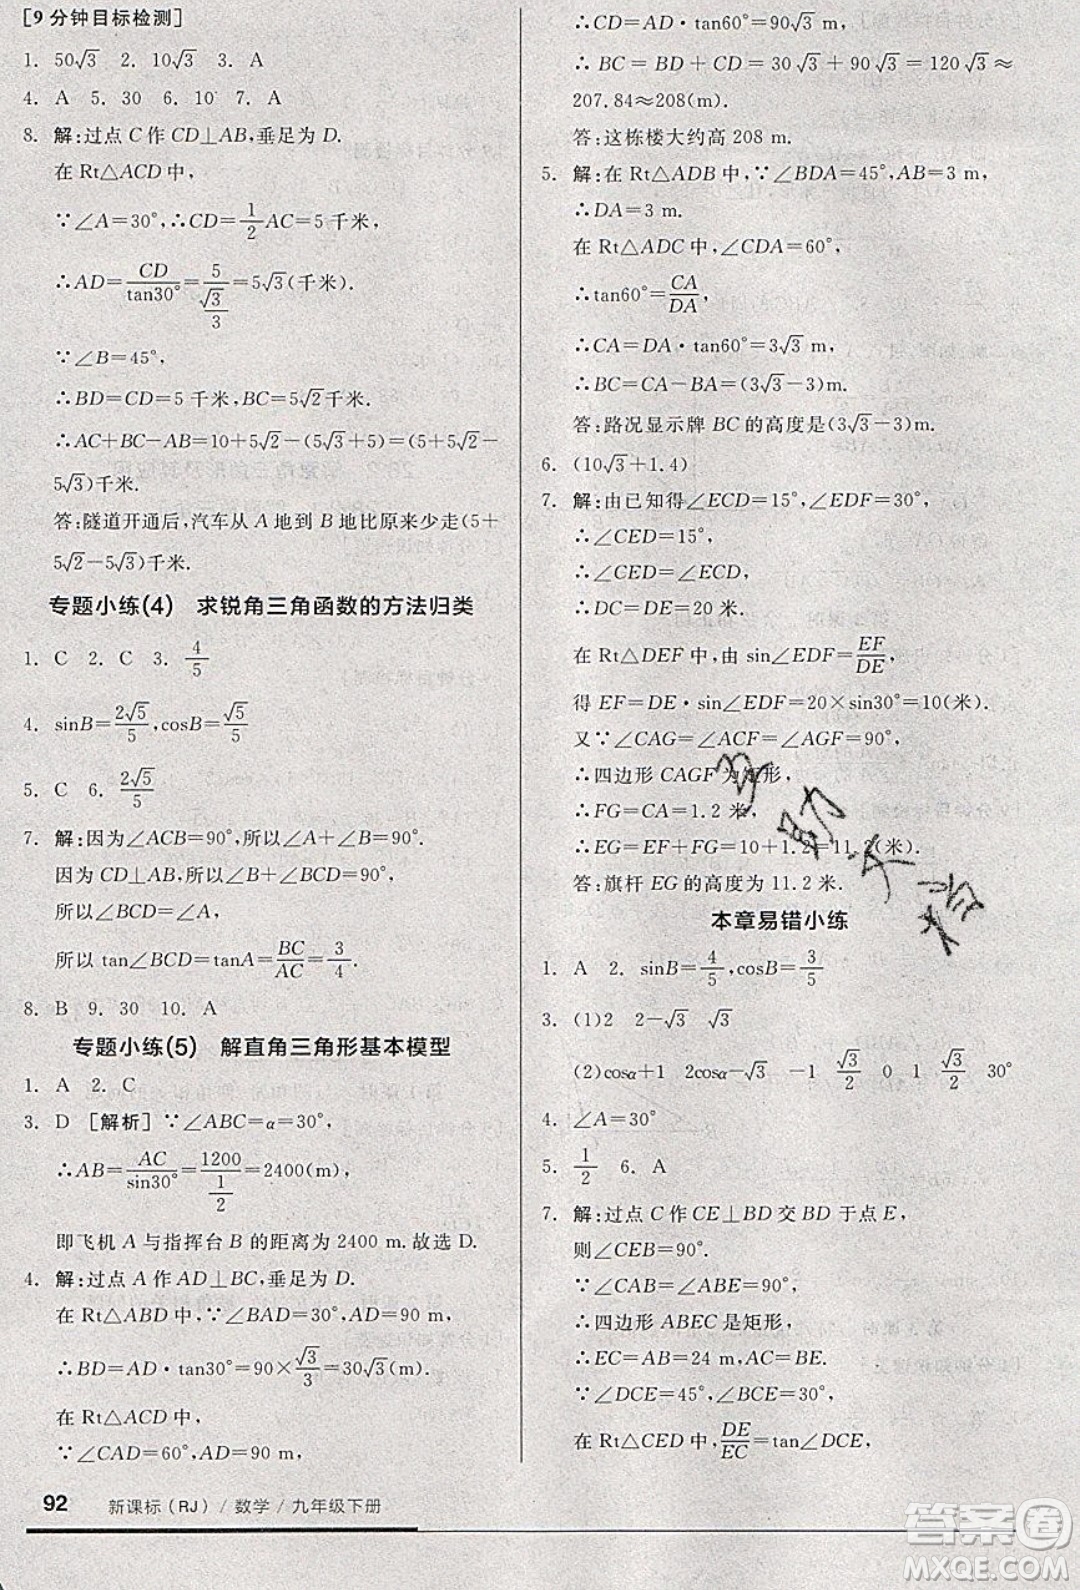 [9分钟目标检测]
1. 50√3 2. 10√3 3. A
4. A 5. 30 6. 10 7. A
8. 解:过点 C 作 CD⊥AB,垂足为 D.
在 Rt△ACD 中,
∵∠A=30°,∴CD=1/2AC=5 千米,
∴AD=CD/tan30°=5/(√3/3)=5√3(千米).
∵∠B=45°,
∴BD=CD=5 千米,BC=5√2千米.
∴AC+BC-AB=10+5√2-(5√3+5)=(5+5√2-
5√3)千米.
答:隧道开通后,汽车从 A 地到 B 地比原来少走(5+
5√2-5√3)千米.
专题小练(4) 求锐角三角函数的方法归类
1. C 2. C 3. 4/5
4. sinB=2√5/5,cosB=√5/5
5. C 6. 2√5/5
7. 解:因为∠ACB=90°,所以∠A+∠B=90°.
因为 CD⊥AB,所以∠BCD+∠B=90°,
所以∠BCD=∠A,
所以 tan∠BCD=tanA=BC/AC=3/4.
8. B 9. 30 10. A
专题小练(5) 解直角三角形基本模型
1. A 2. C
3. D [解析]∵∠ABC=α=30°,
∴AB=AC/sin30°=1200/(1/2)=2400(m),
即飞机 A 与指挥台 B 的距离为 2400 m.故选 D.
4. 解:过点 A 作 AD⊥BC,垂足为 D.
在 Rt△ABD 中,∵∠BAD=30°,AD=90 m,
∴BD=AD·tan30°=90×√3/3=30√3(m).
在 Rt△ACD 中,
∵∠CAD=60°,AD=90 m,
∴CD=AD·tan60°=90√3 m.
∴BC=BD+CD=30√3+90√3=120√3≈
207.84≈208(m).
答:这栋楼大约高 208 m.
5. 解:在 Rt△ADB 中,∵∠BDA=45°,AB=3 m,
∴DA=3 m.
在 Rt△ADC 中,∠CDA=60°,
∴tan60°=CA/DA,
∴CA=DA·tan60°=3√3 m,
∴BC=CA-BA=(3√3-3)m.
答:路况显示牌 BC 的高度是(3√3-3)m.
6. (10√3+1.4)
7. 解:由已知得∠ECD=15°,∠EDF=30°,
∴∠CED=15°,
∴∠CED=∠ECD,
∴DC=DE=20 米,
在 Rt△DEF 中,由 sin∠EDF=EF/DE,
得 EF=DE·sin∠EDF=20×sin30°=10(米).
又∵∠CAG=∠ACF=∠AGF=90°,
∴四边形 CAGF 为矩形,
∴FG=CA=1.2 米,
∴EG=EF+FG=10+1.2=11.2(米).
答:旗杆 EG 的高度为 11.2 米.
本章易错小练
1. A 2. sinB=4/5,cosB=3/5
3. (1)2 2-√3 √3
(2)cosα+1 2cosα -1 √3/2 0 1 √3/2 30°
4. ∠A=30°
5. 1/2 6. A
7. 解:过点 C 作 CE⊥BD 交 BD 于点 E,
则∠CEB=90°.
∵∠CAB=∠ABE=90°,
∴四边形 ABEC 是矩形,
∴EC=AB=24 m,AC=BE.
∵∠DCE=45°,∠BCE=30°,
在 Rt△CED 中,DE/EC=tan∠DCE,
92 新课标(RJ)/数学/九年级下册
答案圈
MXQE.COM